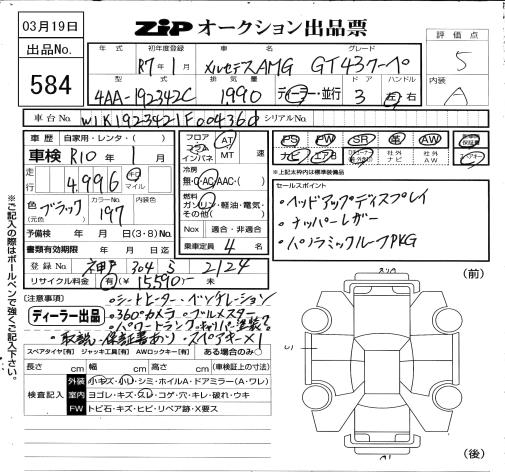 03月19日
ZIP オークション出品票
評価点
5
内装
A
出品No.
584
年式 初年度登録 車名 グレード
R7年1月 メルセデスAMG GT43クーペ
型式 排気量 ドア ハンドル
4AA-192342C 1,990 ディーラー・並行 3 左・右
車台No. W1K1923421F004368 シリアルNo.
車歴 自家用・レンタ・( )
車検 R10年 1月
走行 4,996 キロ マイル
色(元色) ブラック カラーNo. 197 内装色
予備検 年 月 日(3・8)No.
書類有効期限 年 月 日迄
登録No. 神戸 304 る 2124
リサイクル料金 有(¥15,590-) 未
フロア コラム インパネ AT MT 速
冷房 無・AC・AAC・( )
燃料 ガソリン・軽油・電気・その他( )
Nox 適合・非適合
乗車定員 4 名
PS PW SR 革 AW 保証書
ナビ エアB 社外ナビ 社外AW スペアキー
※上記太枠内は標準装備品
セールスポイント
・ヘッドアップディスプレイ
・ナッパーレザー
・パノラミックルーフPKG
(注意事項)
ディーラー出品
・シートヒーター・ベンチレーション
・360°カメラ・ブルメスター
・パワートランク・キャリパー塗装?
・取説・保証書あり・スペアキー×1
スペアタイヤ[有] ジャッキ工具[有] AWロックキー[有] ある場合のみ○
長さ cm 幅 cm 高さ cm (車検証上の寸法)
検査記入
外装 小キズ・ハレ・シミ・ホイルA・ドアミラー(A・ワレ)
室内 ヨゴレ・キズ・スレ・コゲ・穴・キレ・破れ・ウキ
FW トビ石・キズ・ヒビ・リペア跡・X要ス
(前)
(後)
※ご記入の際はボールペンで強くご記入下さい。